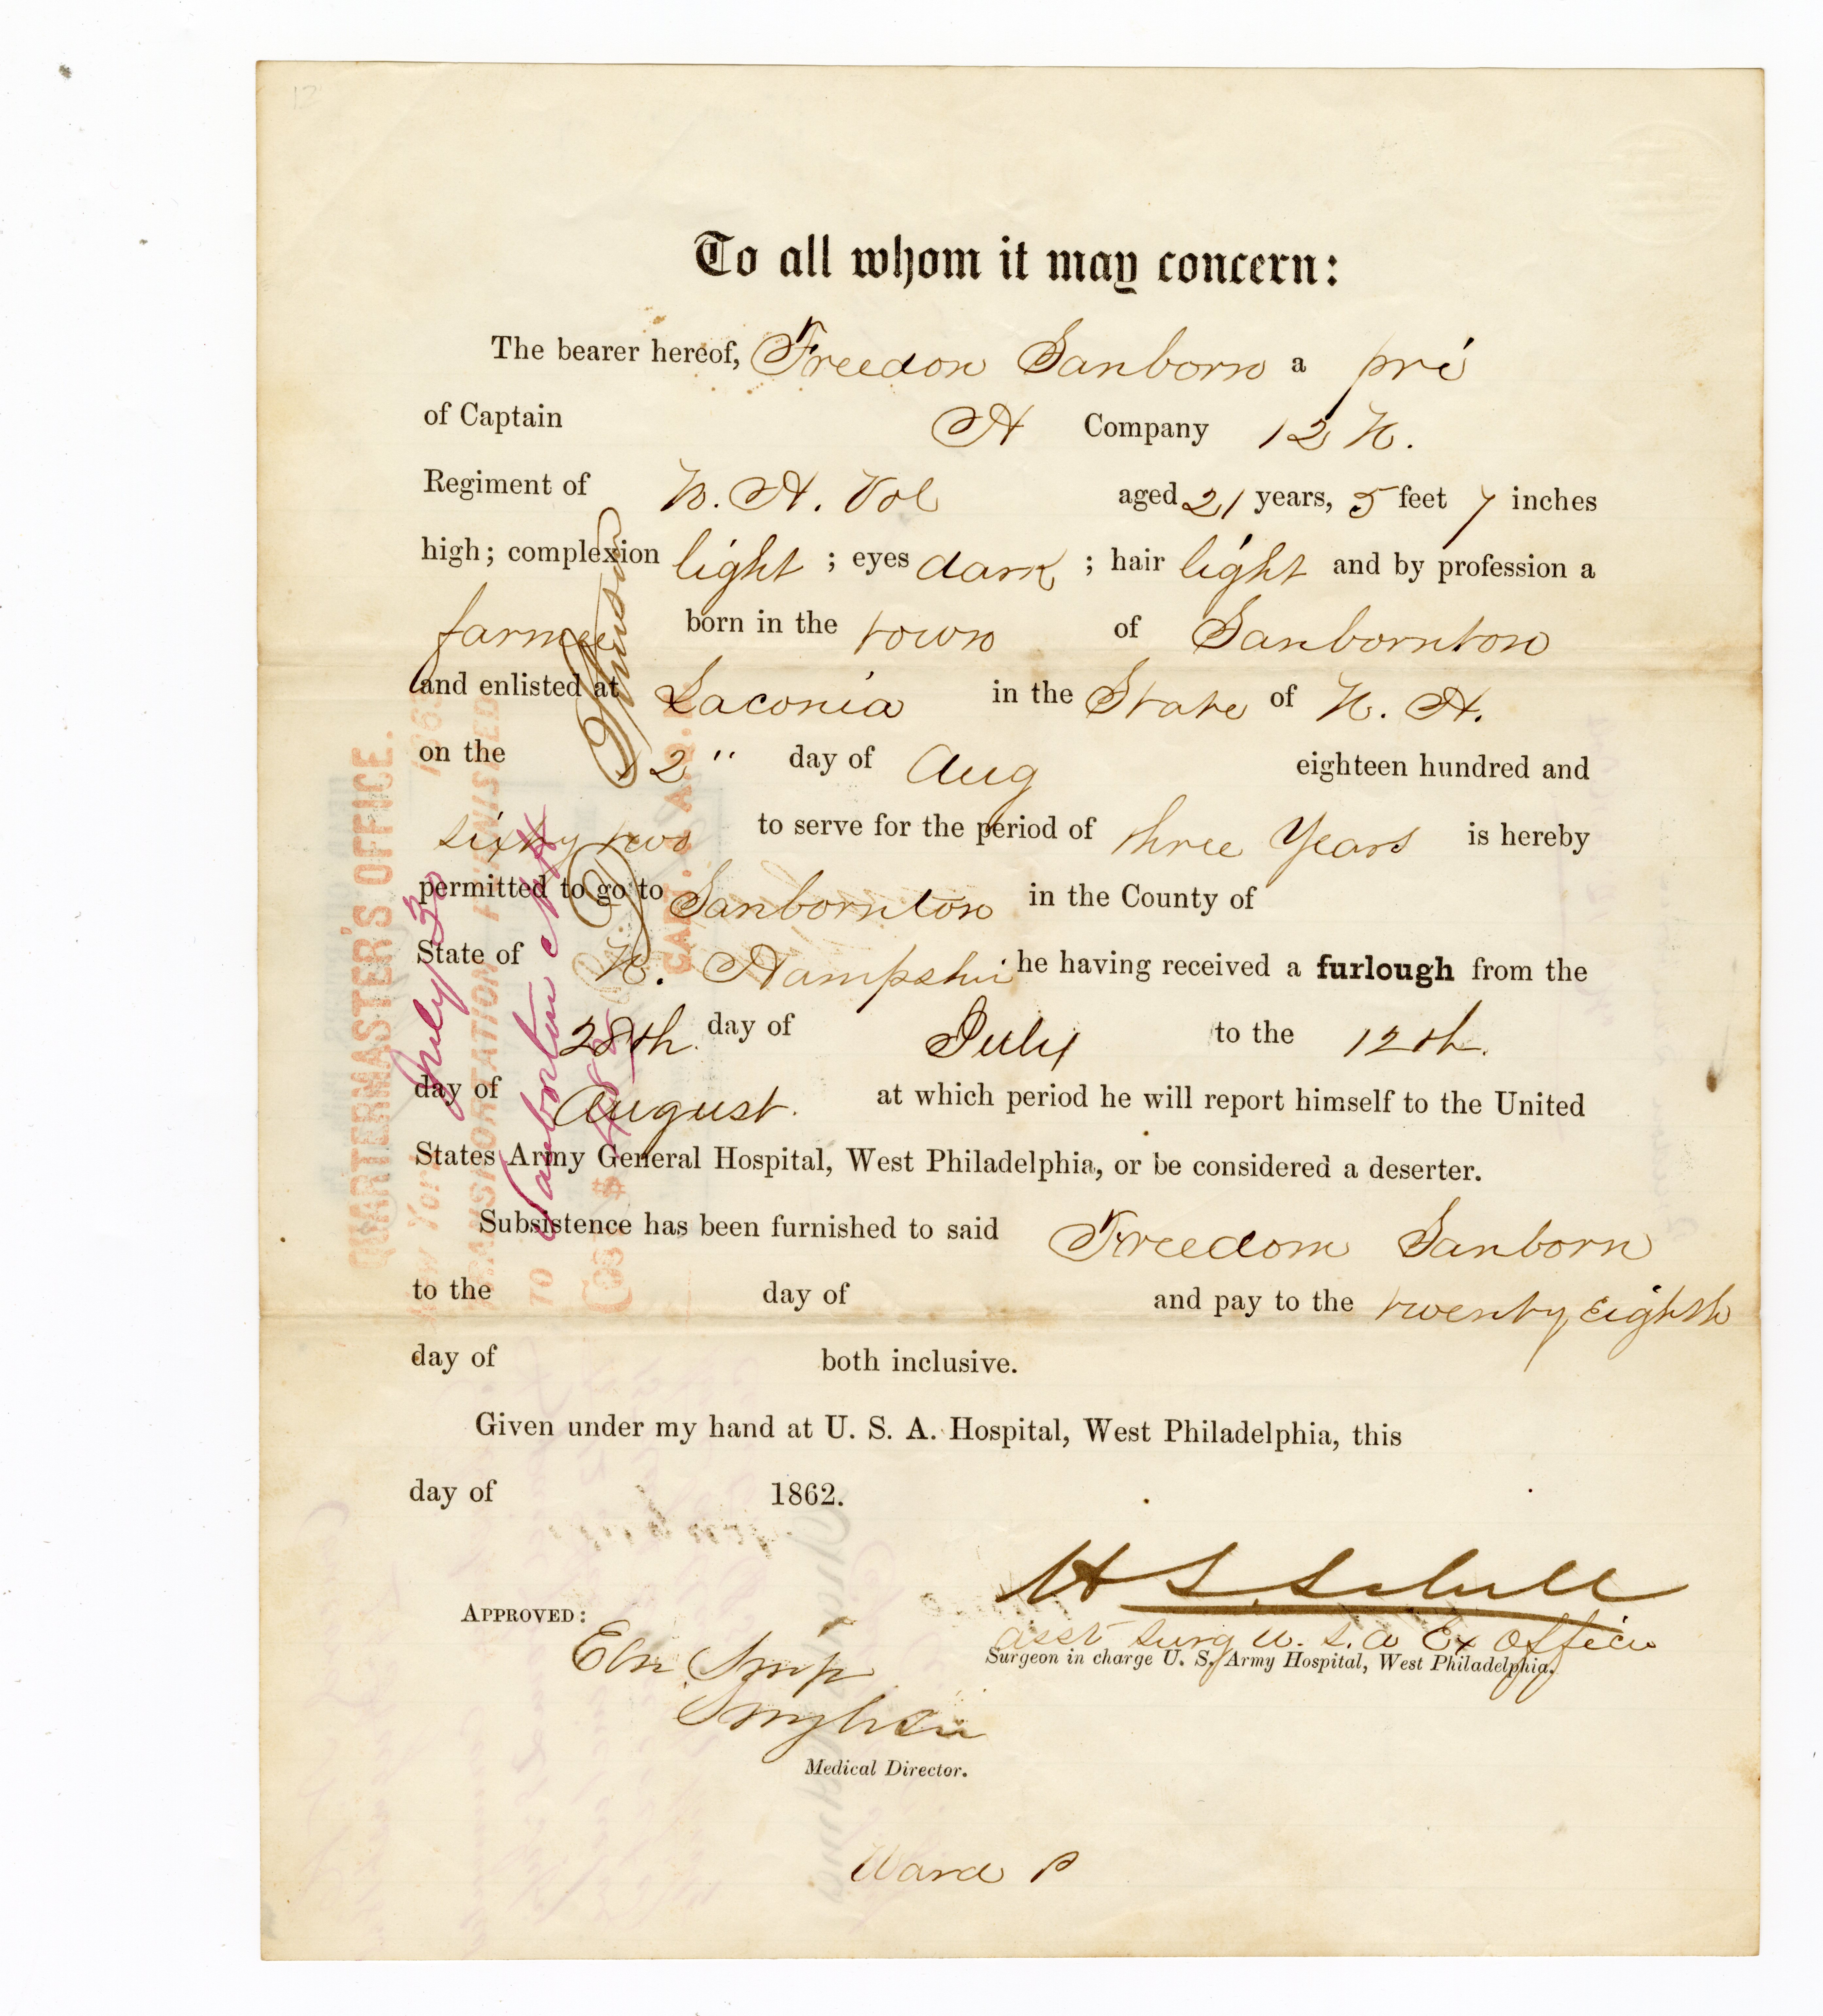 12
To all whom it may concern:
The bearer hereof, Freedon Sanborn a pri
of Captain A Company 12 N.
Regiment of N. H. Vol aged 21 years, 5 feet 7 inches
high; complexion light ; eyes dark ; hair light and by profession a
farmer born in the town of Sanbornton
and enlisted at Laconia in the State of N. H.
on the 12" day of Aug eighteen hundred and
sixty two to serve for the period of three Years is hereby
permitted to go to Sanbornton in the County of
State of N. Hampshi he having received a furlough from the
28th. day of July to the 12th.
day of August. at which period he will report himself to the United
States Army General Hospital, West Philadelphia, or be considered a deserter.
Subsistence has been furnished to said Freedom Sanborn
to the day of and pay to the twenty eighth
day of both inclusive.
Given under my hand at U. S. A. Hospital, West Philadelphia, this
day of 1862.
H S Schell
asst surg U. S. A Ex Officer
Surgeon in charge U. S. Army Hospital, West Philadelphia.
APPROVED:
Medical Director.
Ward P
QUARTERMASTER'S OFFICE.
New York July 30 1863
TRANSPORTATION FURNISHED
TO Sanborton N H
Cost $
CAPT. A.Q.M.